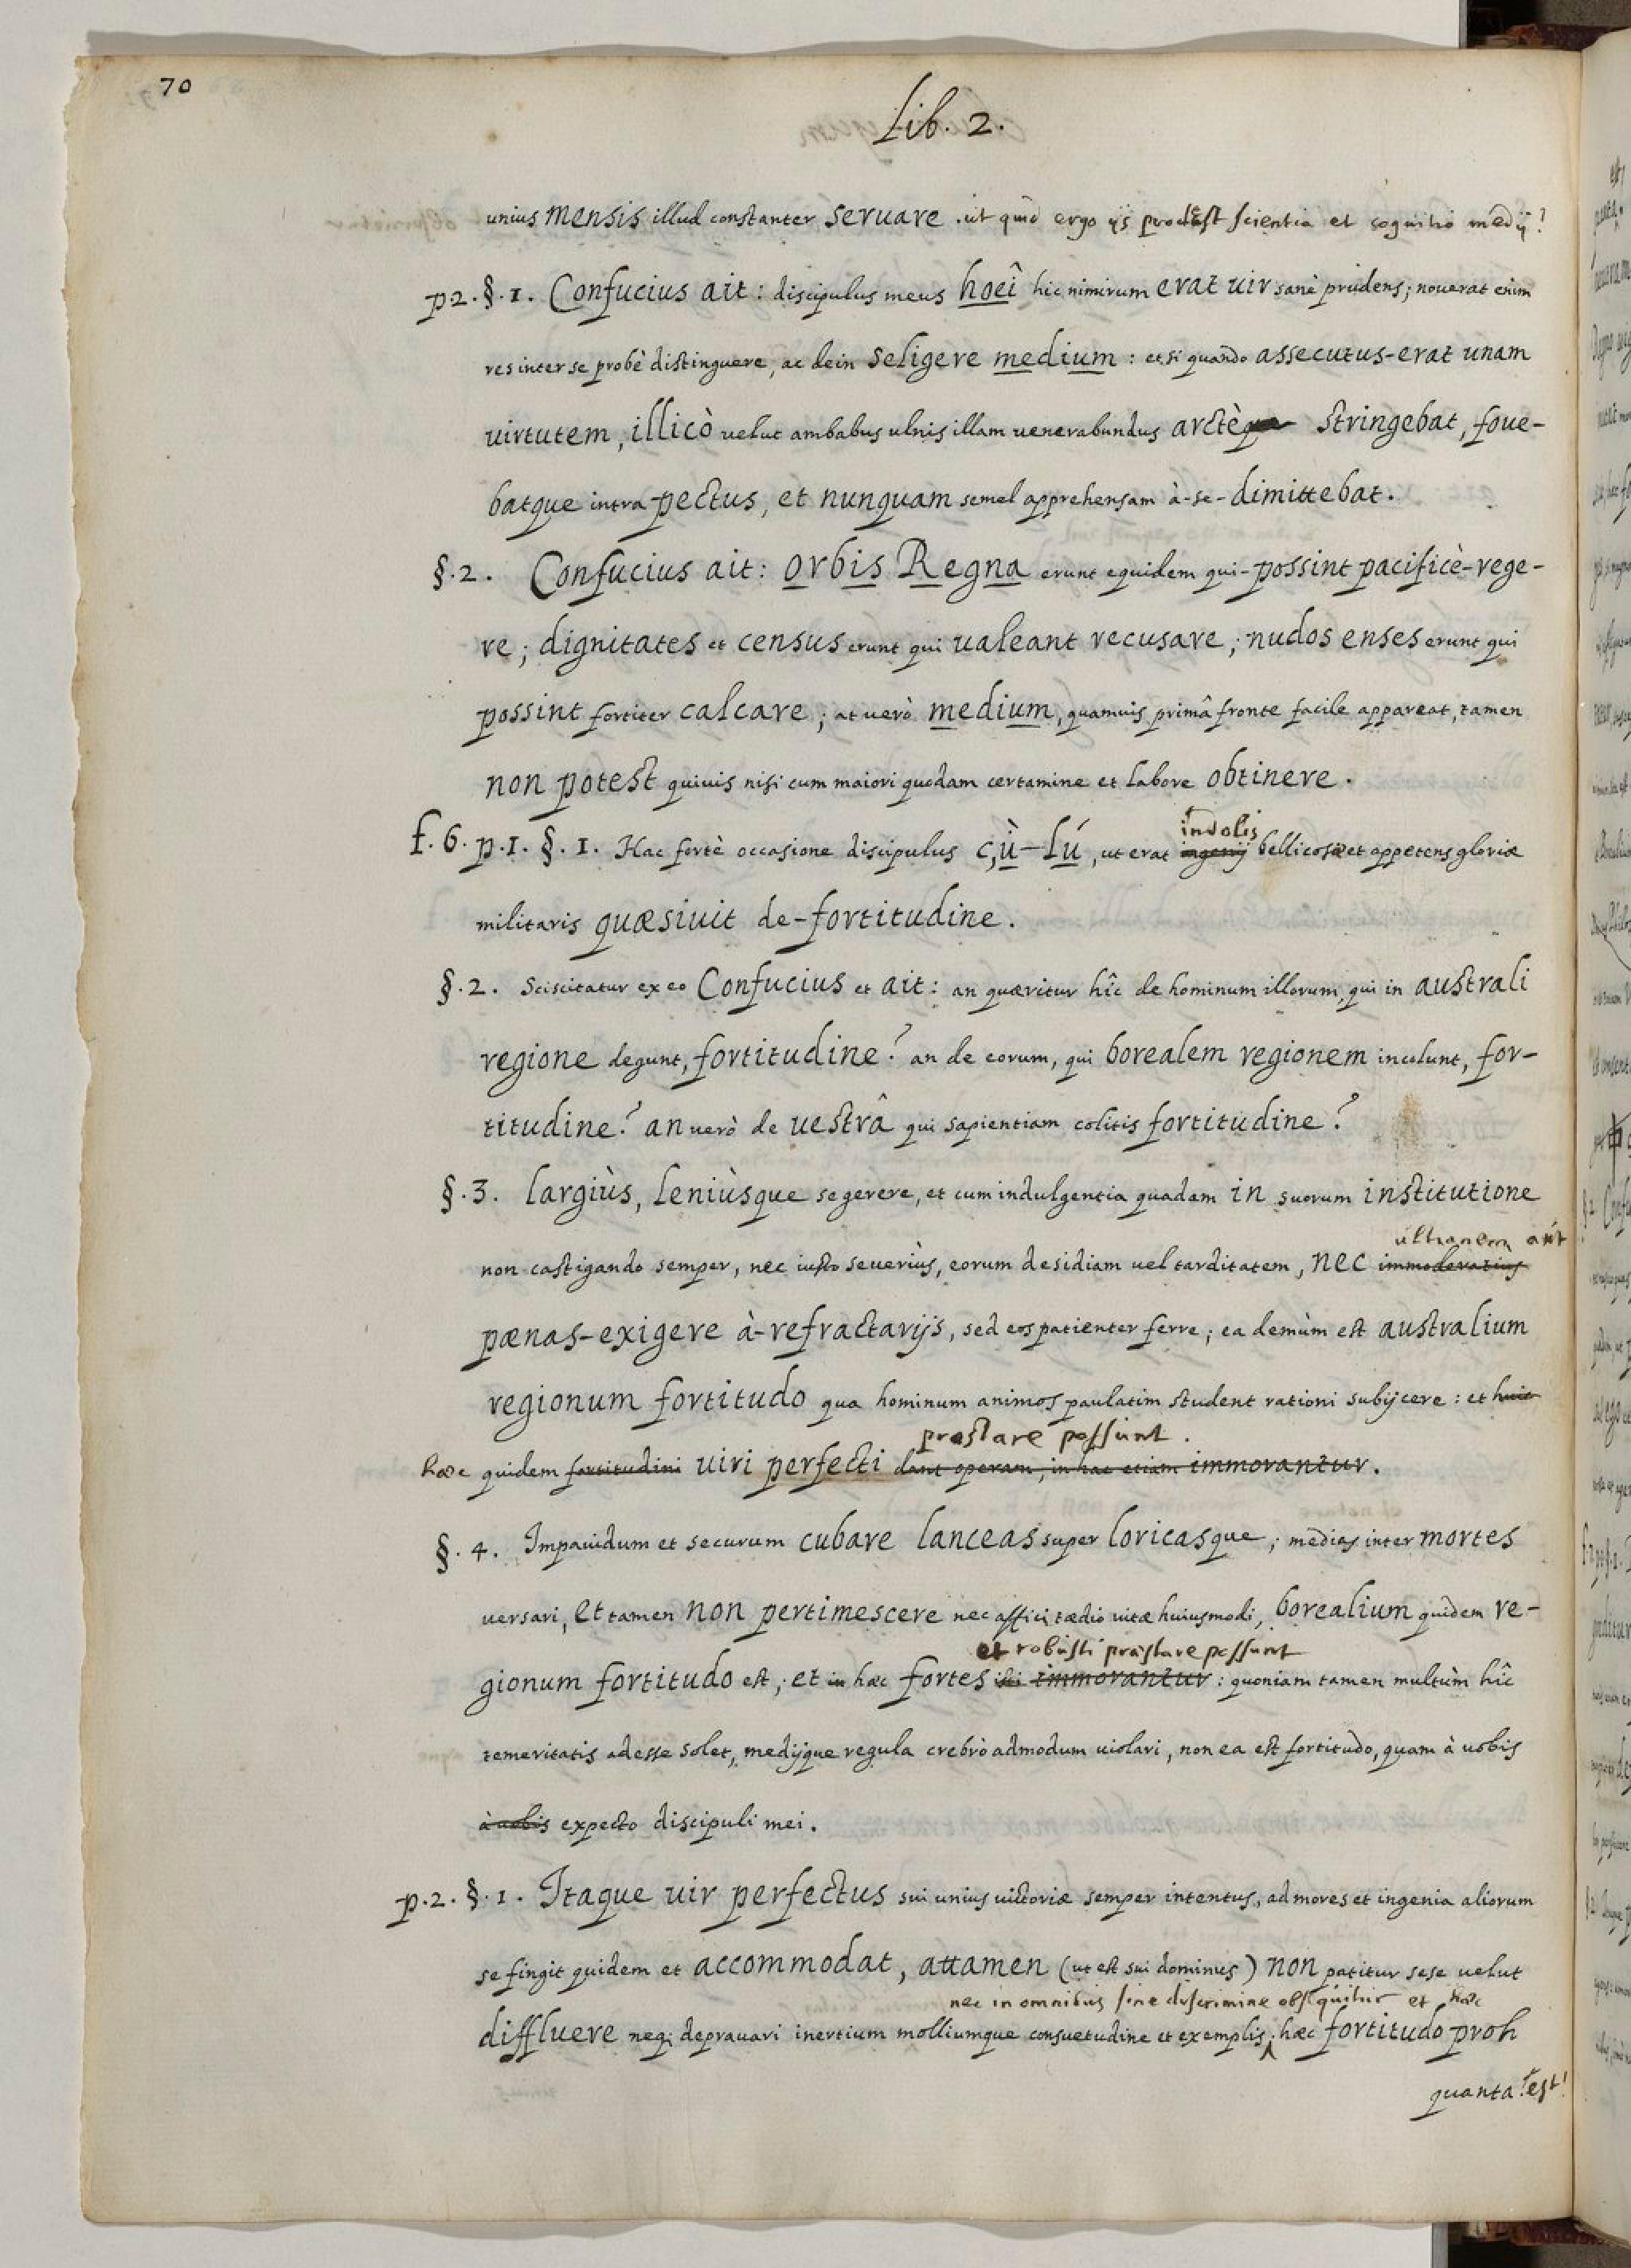 70
Lib. 2.
unius mensis illud constanter seruare . ut quid ergo ijs prodest scientia et cognitio medij?
p2. §. 1. Confucius ait: discipulus meus hoeî hic nimirum erat uir sanè prudens; nouerat enim
res inter se probè distinguere, ac dein seligere medium : et si quando assecutus-erat unam
uirtutem, illicò uelut ambabus ulnis illam uenerabundus arctè stringebat, foue-
batque intra pectus, et nunquam semel apprehensam à-se-dimittebat.
§. 2. Confucius ait: orbis Regna erunt equidem qui-possint pacificè-rege-
re; dignitates et census erunt qui ualeant recusare; nudos enses erunt qui
possint fortiter calcare; at uerò medium, quamuis primâ fronte facile appareat, tamen
non potest quiuis nisi cum maiori quodam certamine et labore obtinere.
indolis
f. 6. p. 1. §. 1. Hac fortè occasione discipulus çù-lú, ut erat ingenij bellicosæ et appetens gloriæ
militaris quæsiuit de-fortitudine.
§. 2. Sciscitatur ex eo Confucius et ait: an quæritur hîc de hominum illorum, qui in australi
regione degunt, fortitudine? an de eorum, qui borealem regionem incolunt, for-
titudine? an uerò de uestrâ qui sapientiam colitis fortitudine?
§. 3. largiùs, leniùsque se gerere, et cum indulgentia quadam in suorum institutione
ultraneam aut
non castigando semper, nec iusto seueriùs, eorum desidiam uel tarditatem, nec immoderatius
pænas-exigere à-refractarijs, sed eos patienter ferre; ea demùm est australium
regionum fortitudo qua hominum animos paulatim student rationi subijcere : et huic
præstare possunt.
hæc quidem fortitudini uiri perfecti dant operam, in hac etiam immorantur.
§. 4. Impauidum et securum cubare lanceas super loricasque; medias inter mortes
uersari, et tamen non pertimescere nec affici tædio uitæ huiusmodi, borealium quidem re-
et robusti præstare possunt
gionum fortitudo est; et in hæc fortes ibi immorantur : quoniam tamen multùm hîc
temeritatis adesse solet, medijque regula crebrò admodum uiolari, non ea est fortitudo, quam à uobis
à uobis expecto discipuli mei.
p. 2. §. 1. Itaque uir perfectus sui unius uictoriæ semper intentus, ad mores et ingenia aliorum
se fingit quidem et accommodat, attamen (ut est sui dominus) non patitur sese uelut
nec in omnibus sine discrimine obsequitur et hæc
diffluere neq; deprauari inertium molliumque consuetudine et exemplis; hæc fortitudo proh
quanta est!